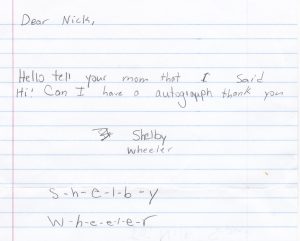 Dear Nick,
Hello tell your mom that I said
Hi! Can I have a autograph thank you
Shelby
wheeler
S-h-e-l-b-y
W-h-e-e-l-e-r